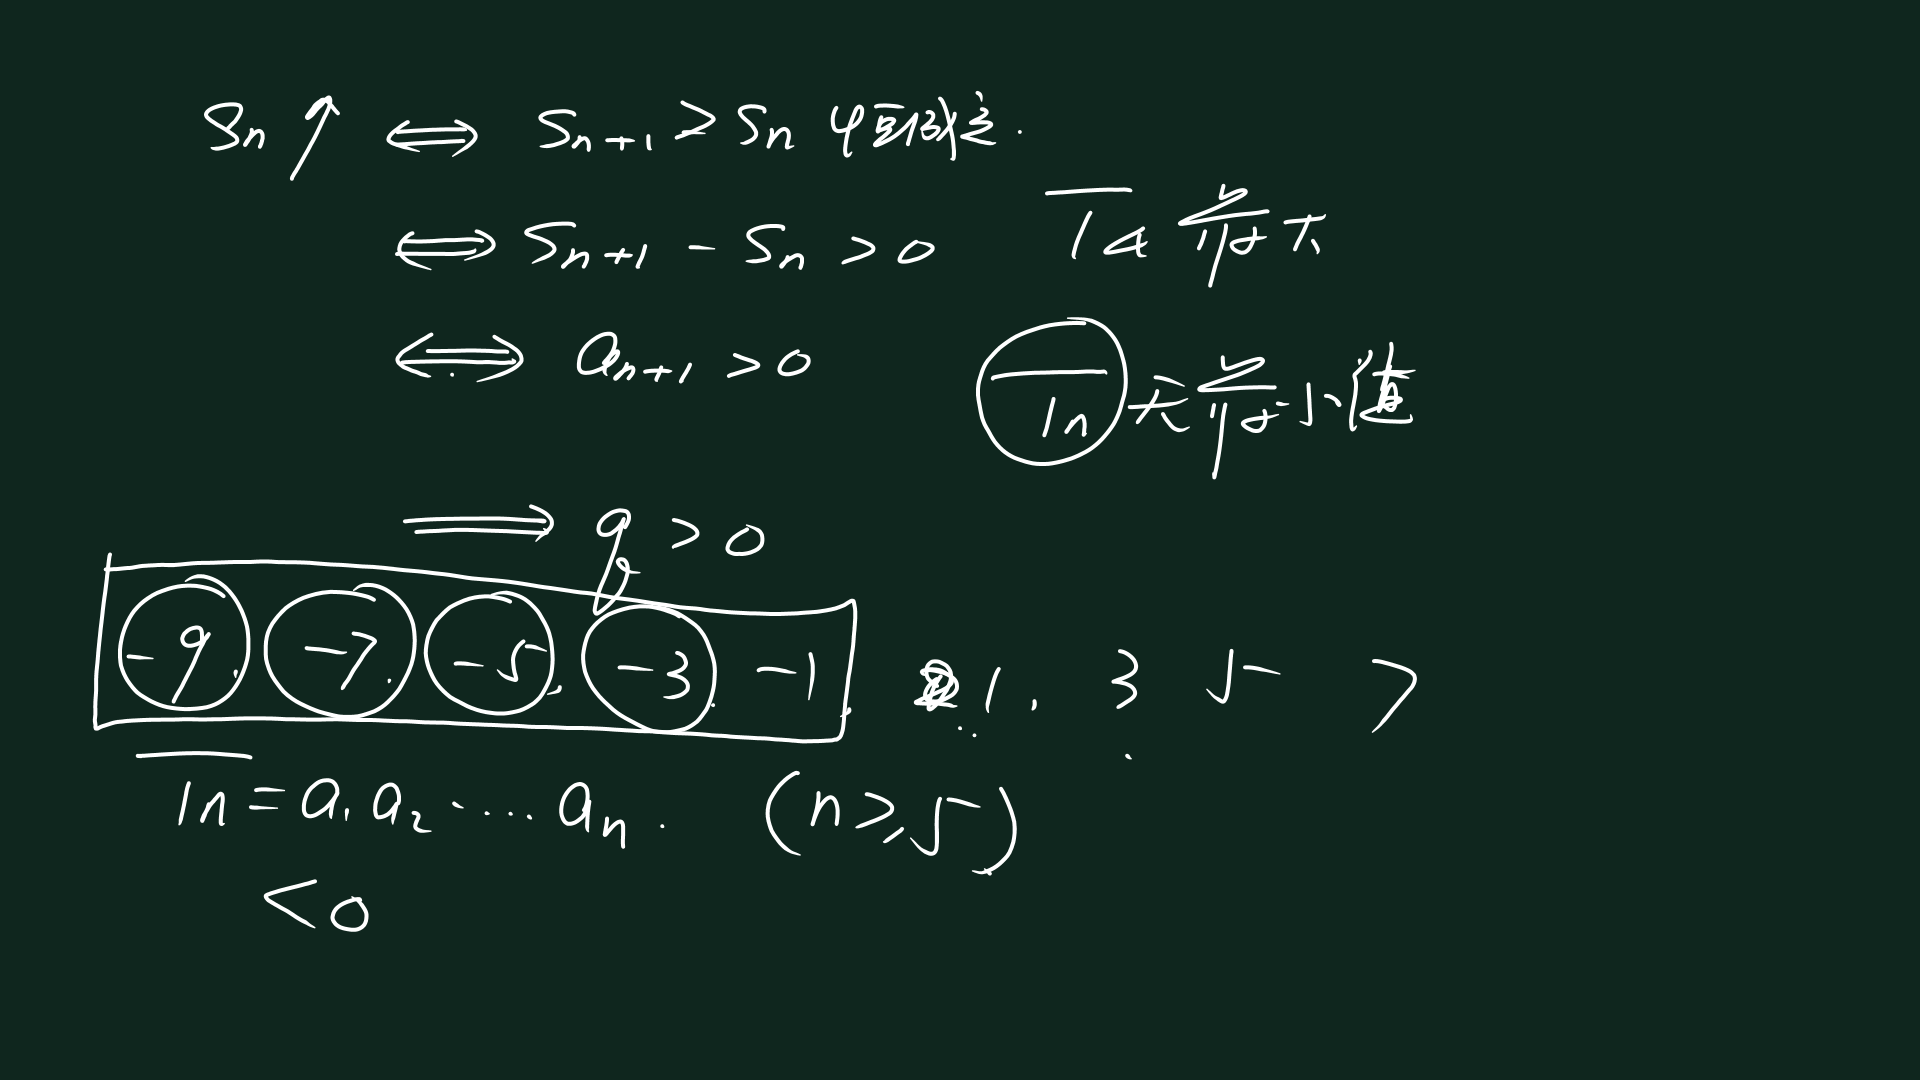 Sn ↑ ⟺ Sn+1 > Sn 恒成立.
⟺ Sn+1 - Sn > 0
T4 最大
⟺ an+1 > 0
Tn 无最小值
⟹ q > 0
-9, -7, -5, -3, -1, 1, 3 5 7
Tn = a1 a2 ..... an. (n ≥ 5)
< 0